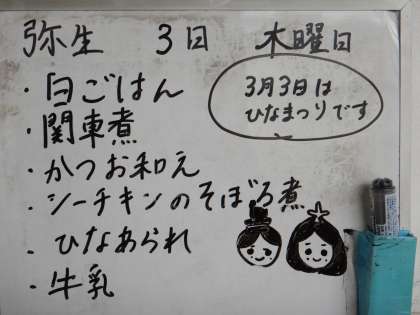 弥生 3日 木曜日
3月3日は
ひなまつりです
・白ごはん
・関東煮
・かつお和え
・シーチキンのそぼろ煮
・ひなあられ
・牛乳